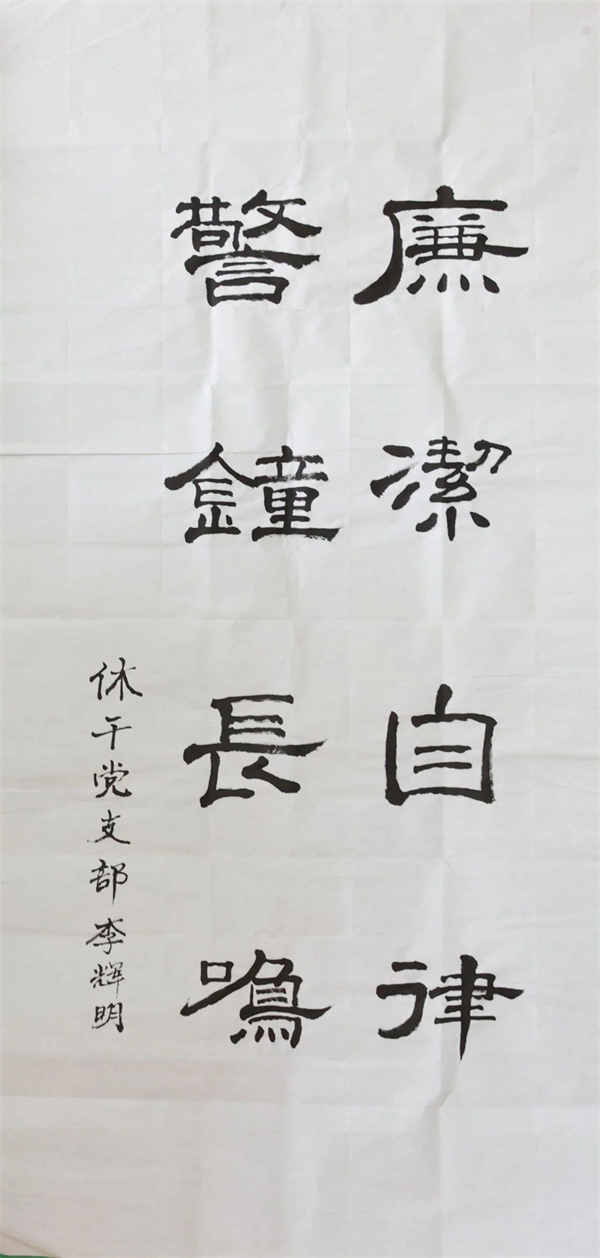 廉潔自律
警鐘長鳴
休干党支部李輝明